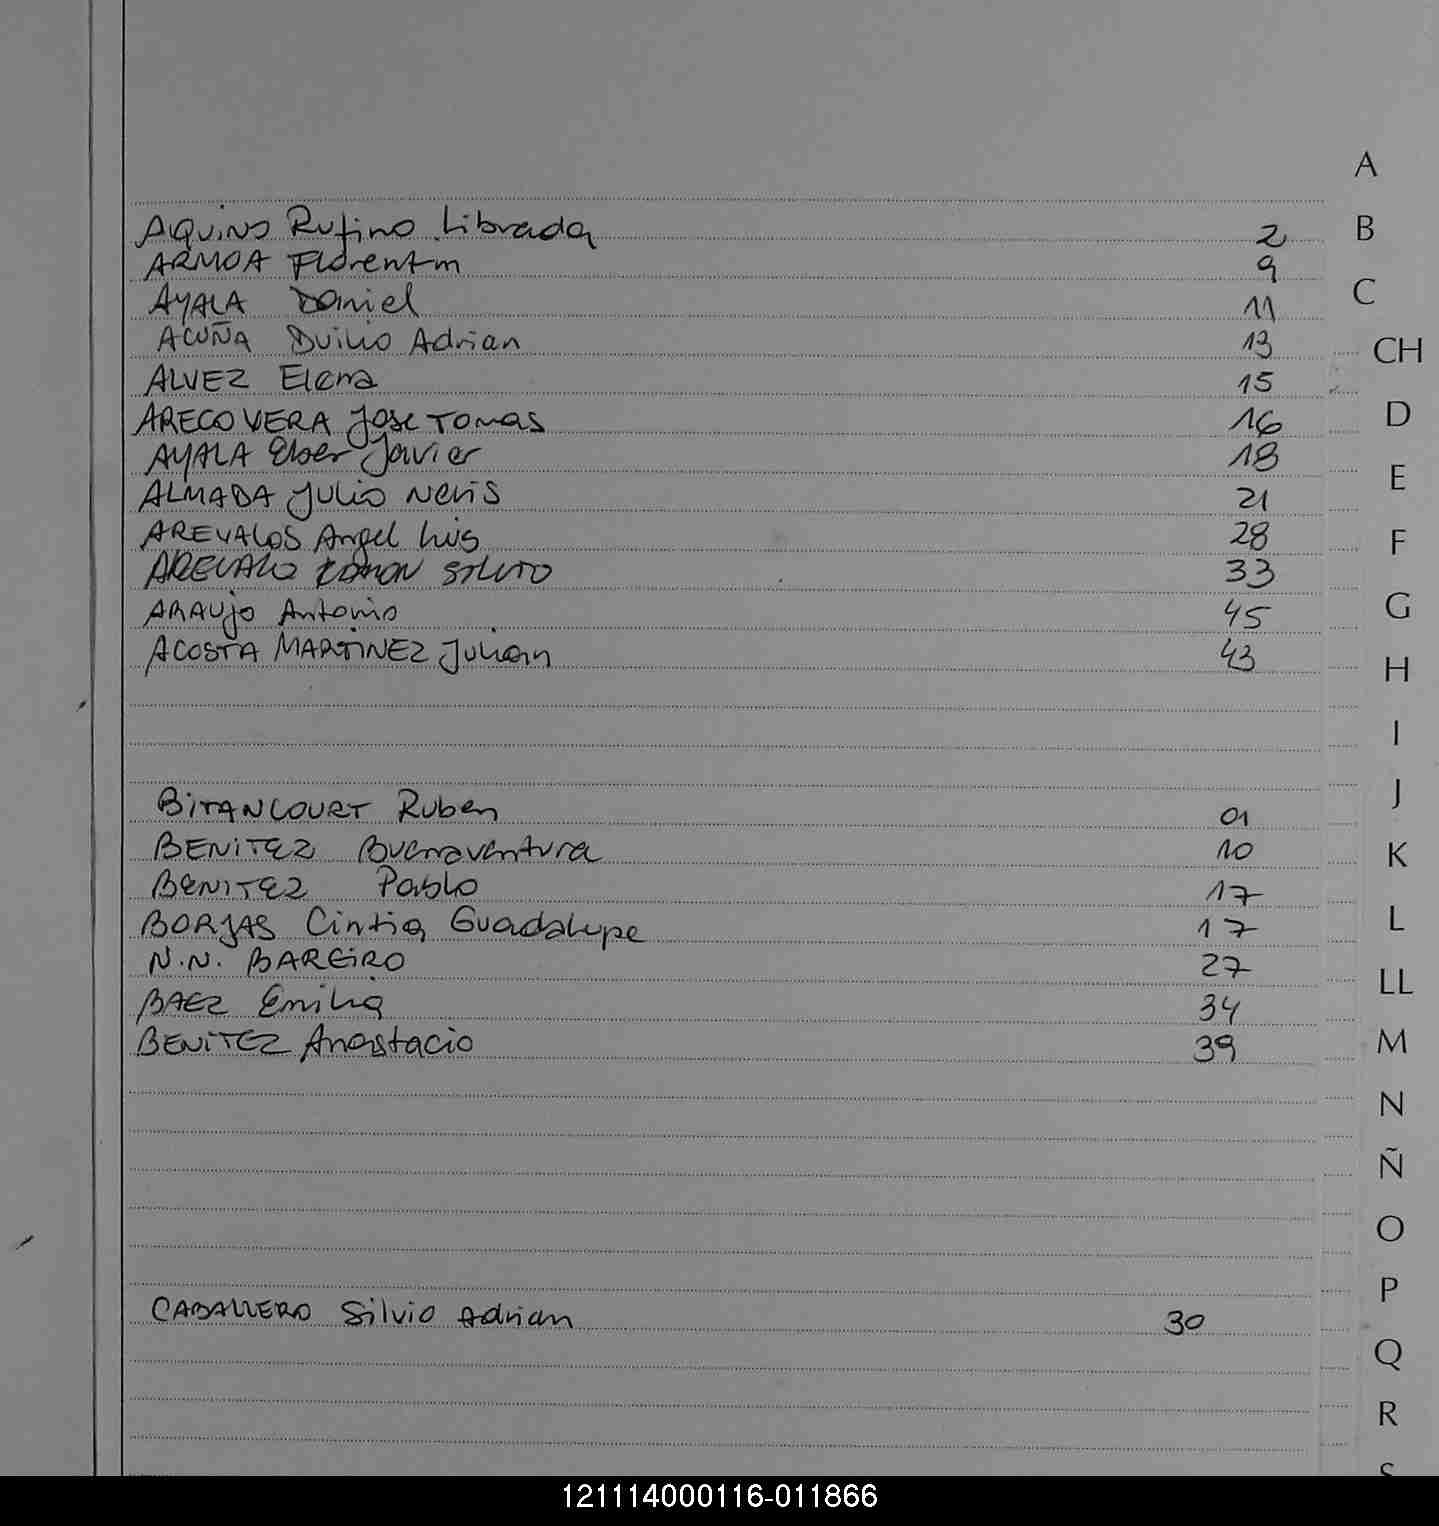 AQUINO Rufino Librada 2
ARMOA Florentin 9
AYALA Daniel 11
ACUÑA Duilio Adrian 13
ALVEZ Elena 15
ARECO VERA Jose Tomas 16
AYALA Elber Javier 18
ALMADA Julio Neris 21
AREVALOS Angel Luis 28
AREVALO RAMON 33
ARAUJO Antonio 45
ACOSTA MARTINEZ Julian 43
BITANCOURT Ruben 01
BENITEZ Buenaventura 10
BENITEZ Pablo 17
BORJAS Cintia Guadalupe 17
N.N. BAREIRO 27
BAEZ Emilia 34
BENITEZ Anastacio 39
CABALLERO Silvio Adrian 30
A
B
C
CH
D
E
F
G
H
I
J
K
L
LL
M
N
Ñ
O
P
Q
R
S
121114000116-011866